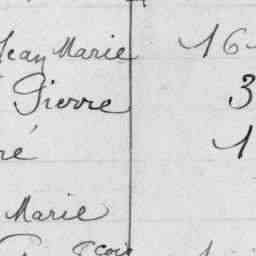 Jean Marie 16
Pierre 3
ré 1
Marie